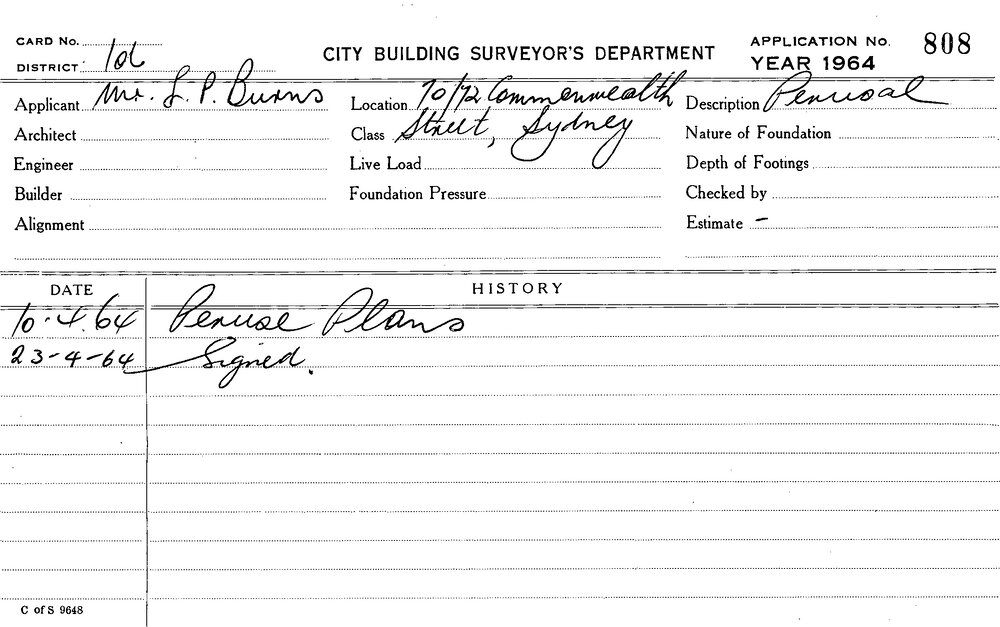 CARD No.
CITY BUILDING SURVEYOR'S DEPARTMENT
APPLICATION No. 808
DISTRICT:
YEAR 1964
Applicant Mr. L. P. Burns Location 70/72 Commonwealth Description Perusal
Architect Class Street, Sydney Nature of Foundation
Engineer Live Load Depth of Footings
Builder Foundation Pressure Checked by
Alignment Estimate –
DATE HISTORY
10.4.64 Peruse Plans
23-4-64 Signed.
C of S 9648